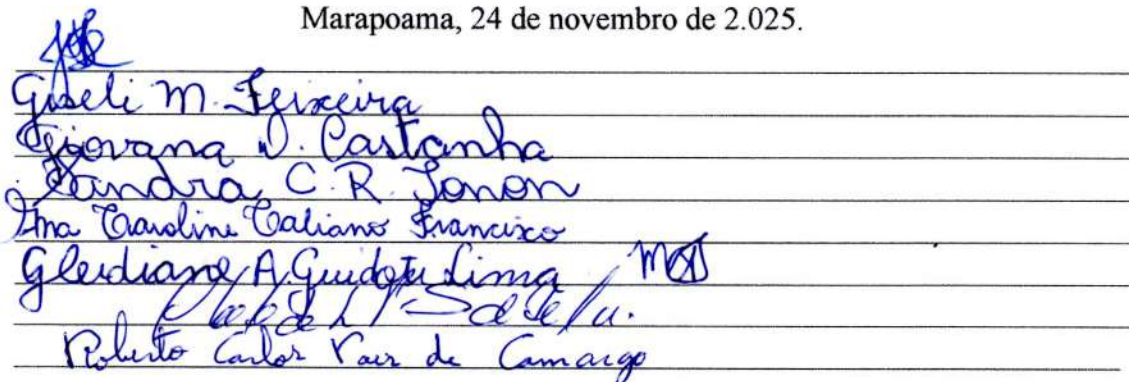 Marapoama, 24 de novembro de 2.025.
Giseli M. Teixeira
Giovana D. Castanha
Sandra C. R. Tonon
Ana Caroline Caliano Francisco
Gleidiane A. Guidoti Lima
Roberto Carlos Vaer de Camargo